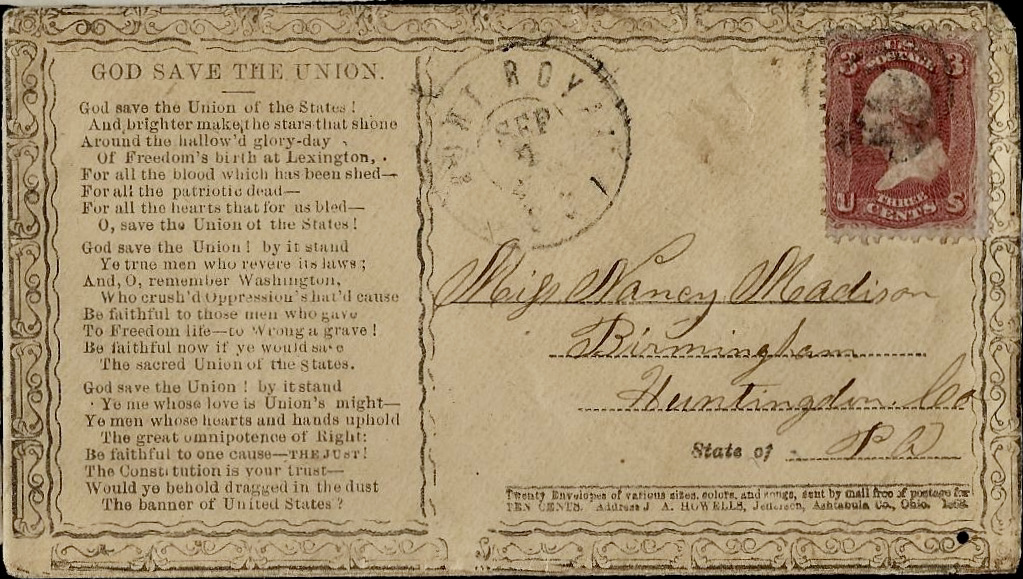 GOD SAVE THE UNION.
God save the Union of the States!
And brighter make the stars that shone
Around the hallow'd glory-day
Of Freedom's birth at Lexington,
For all the blood which has been shed—
For all the patriotic dead—
For all the hearts that for us bled—
O, save the Union of the States!
God save the Union! by it stand
Ye true men who revere its laws;
And, O, remember Washington,
Who crush'd Oppression's hat'd cause
Be faithful to those men who gave
To Freedom life—to Wrong a grave!
Be faithful now if ye would save
The sacred Union of the States.
God save the Union! by it stand
Ye me whose love is Union's might—
Ye men whose hearts and hands uphold
The great omnipotence of Right:
Be faithful to one cause—THE JUST!
The Constitution is your trust—
Would ye behold dragged in the dust
The banner of United States?
PORT ROYAL
SEP
U.S.
POSTAGE
3 3
U THREE S
CENTS
Miss Nancy Madison
Birmingham
Huntingdon Co
State of PA
Twenty Envelopes of various sizes, colors, and songs, sent by mail free of postage for
TEN CENTS. Address J. A. HOWELLS, Jefferson, Ashtabula Co., Ohio.